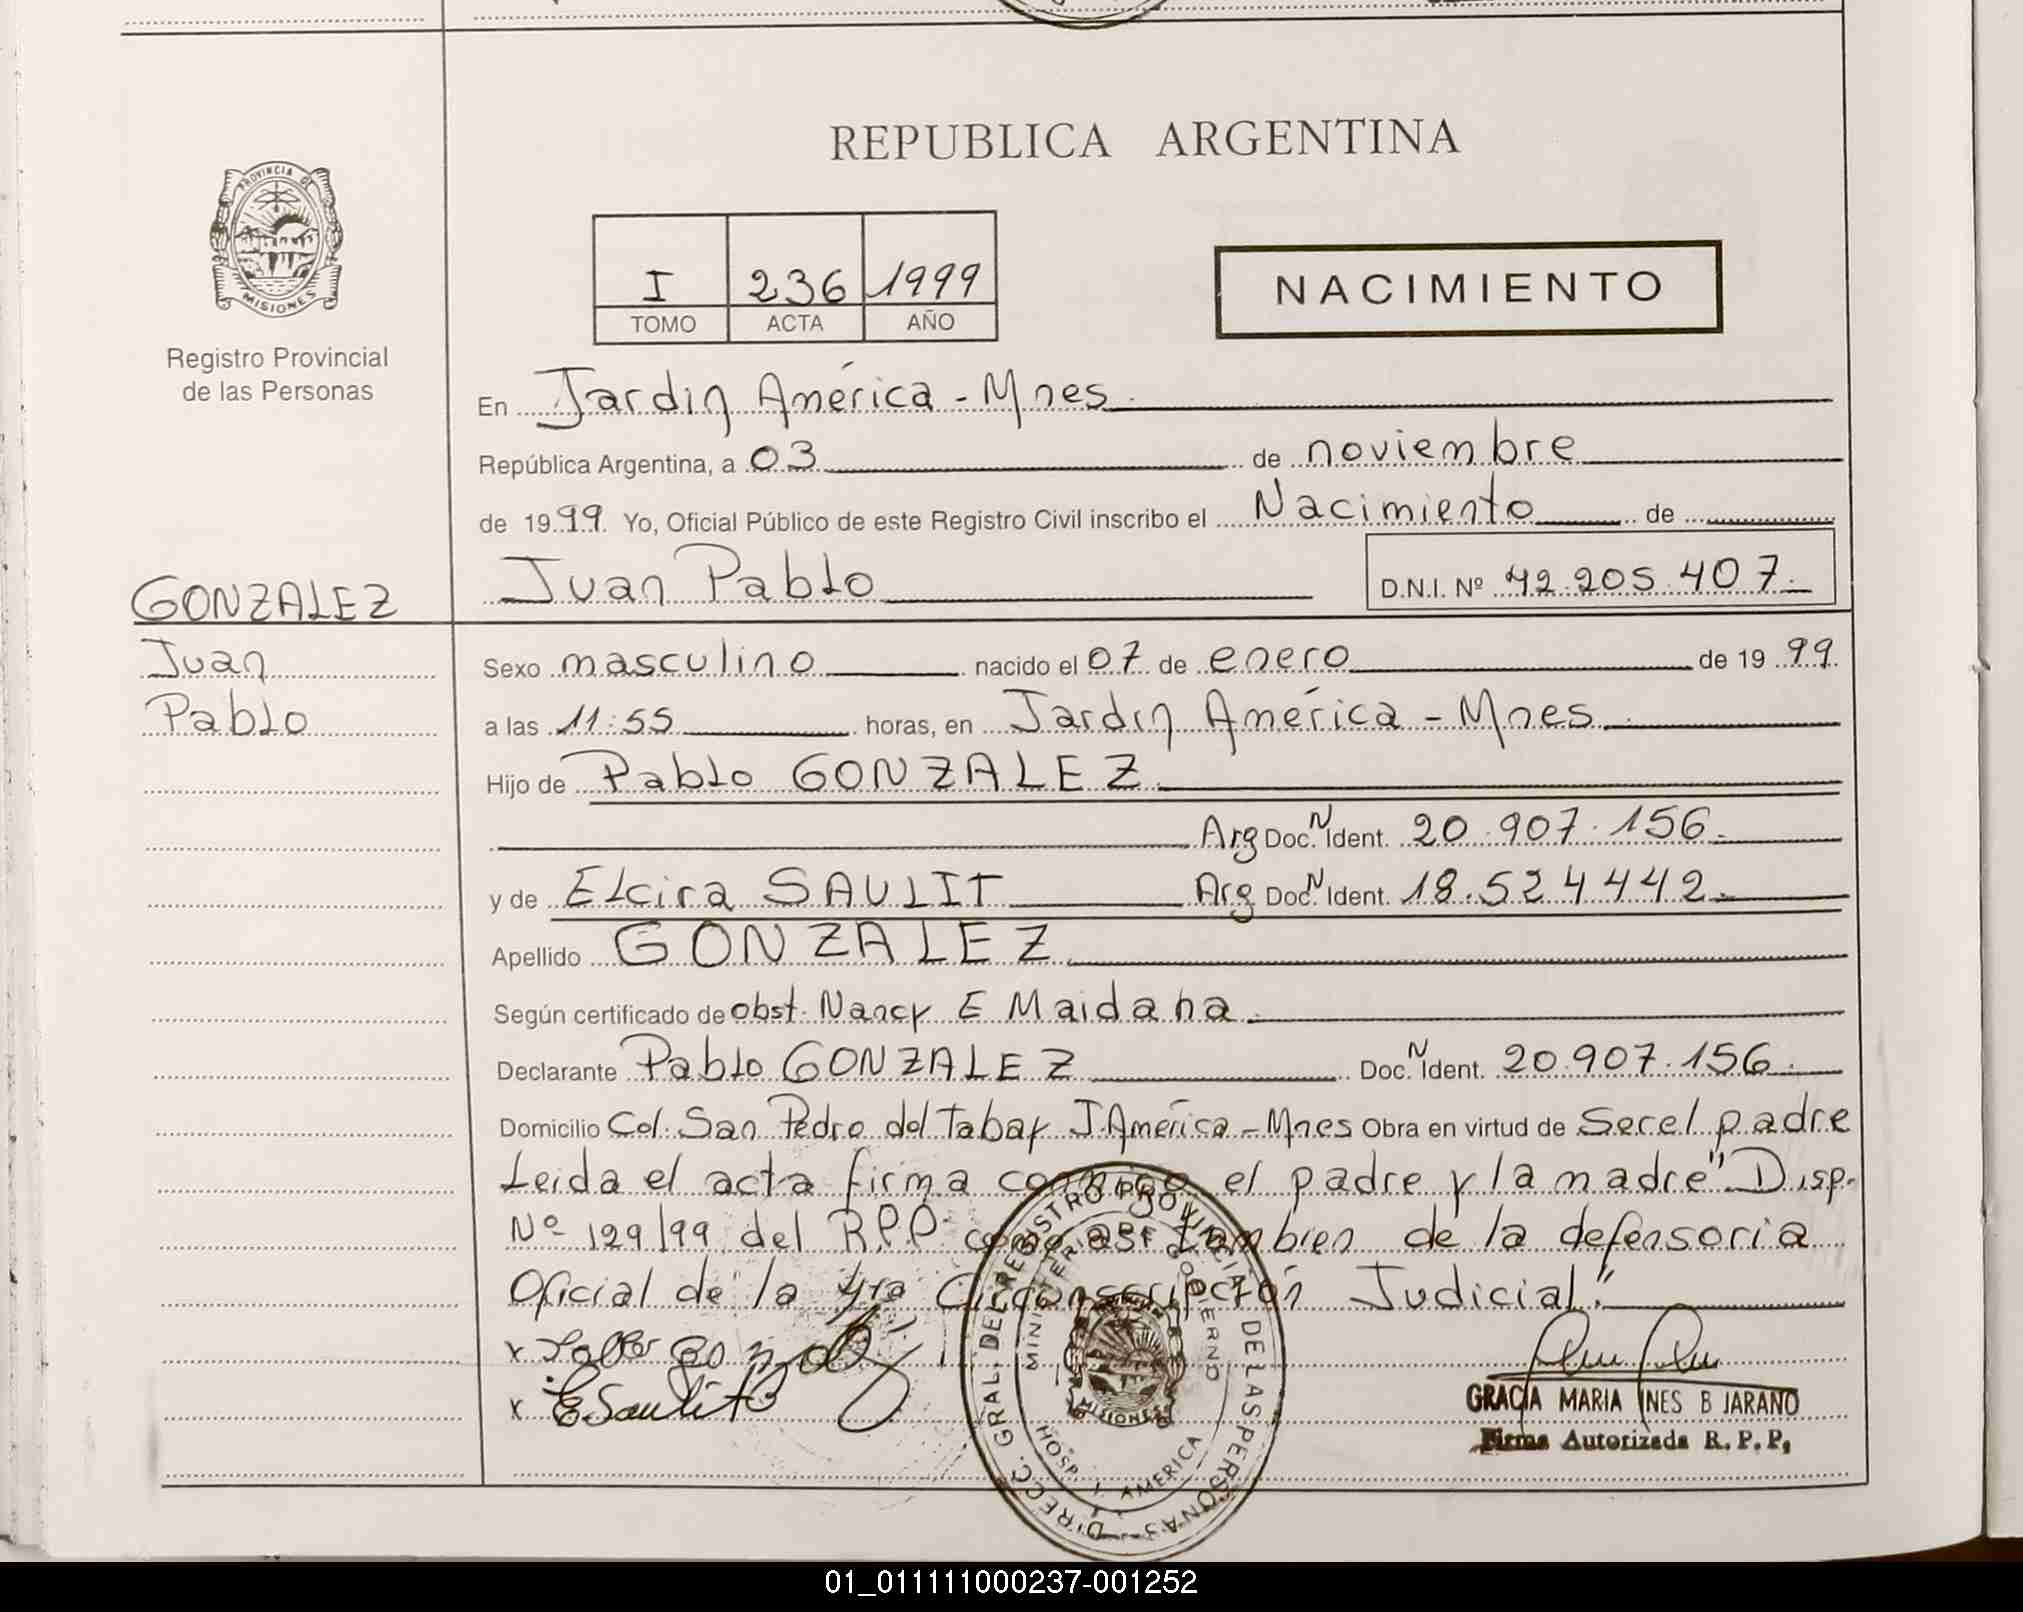 REPUBLICA ARGENTINA
PROVINCIA DE
MISIONES
Registro Provincial
de las Personas
I 236 1999
TOMO ACTA AÑO
NACIMIENTO
En Jardin América - Mnes
República Argentina, a 03 de noviembre
de 1999 Yo, Oficial Público de este Registro Civil inscribo el Nacimiento de
Juan Pablo D.N.I. Nº 42.205.407.
GONZALEZ
Juan
Pablo
Sexo masculino nacido el 07 de enero de 1999
a las 11:55 horas, en Jardin América - Mnes
Hijo de Pablo GONZALEZ
Arg Doc. N Ident. 20.907.156
y de Elcira SAULIT Arg Doc. N Ident. 18.524442
Apellido GONZALEZ
Según certificado de obst. Nancy E Maidana
Declarante Pablo GONZALEZ Doc. N Ident. 20.907.156
Domicilio Col. San Pedro del Tabay J. América - Mnes Obra en virtud de Ser el padre
Leida el acta firma conmigo el padre y la madre "Disp.
Nº 129/99 del R.P.P como asi tambien de la defensoria
Oficial de la 4ta Circonscripción Judicial."
x Pablo gonzalez
x E. Saulit
DIRECC. GRAL. DEL REGISTRO PROVINCIAL DE LAS PERSONAS
MINISTERIO DE GOBIERNO
MISIONES
HOSP. J. AMERICA
GRACIA MARIA INES B JARANO
Firma Autorizada R. P. P.
01_011111000237-001252